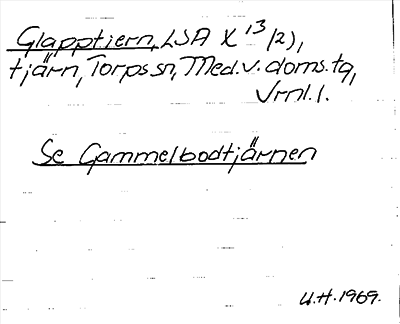 Glapptiern, LSA X 13/2),
tjärn, Torps sn, Med.v. doms. tg,
Vrnl.l.
Se Gammelbodtjärnen
U.H. 1969.